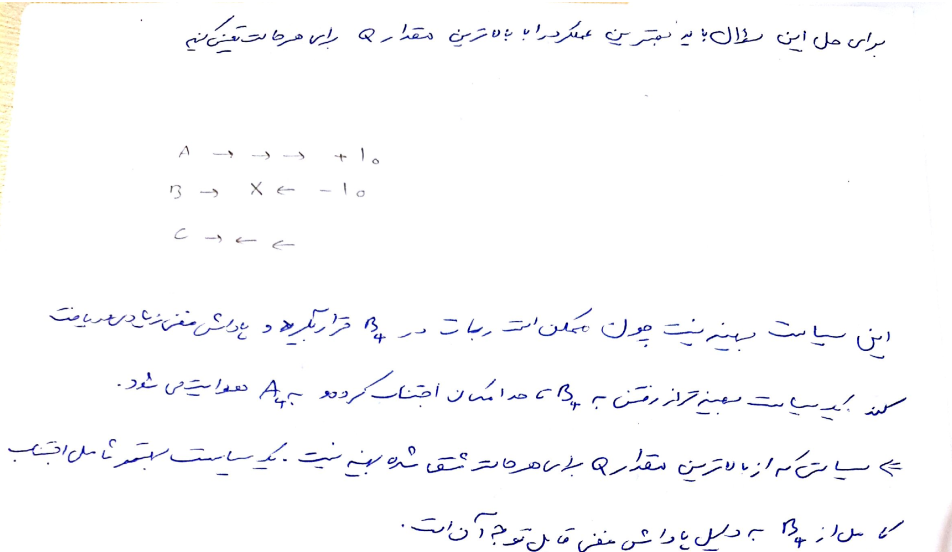 برای حل این سوال باید بهترین عملکرد را با بالاترین مقدار Q برای هر حالت تعیین کنیم
A → → → +10
B → X ← -10
C → ← ←
این سیاست بهینه نیست چون ممکن است ربات در B4 قرار بگیرد و پاداش منفی زیادی دریافت
کند. یک سیاست بهینه تر از رفتن به B4 تا حد امکان اجتناب کرده و به A4 هدایت می شود.
⇐ سیاستی که از بالاترین مقدار Q برای هر حالت مشتق شده بهینه نیست. یک سیاست بهتر شامل اجتناب
کامل از B4 به دلیل پاداش منفی قابل توجه آن است.